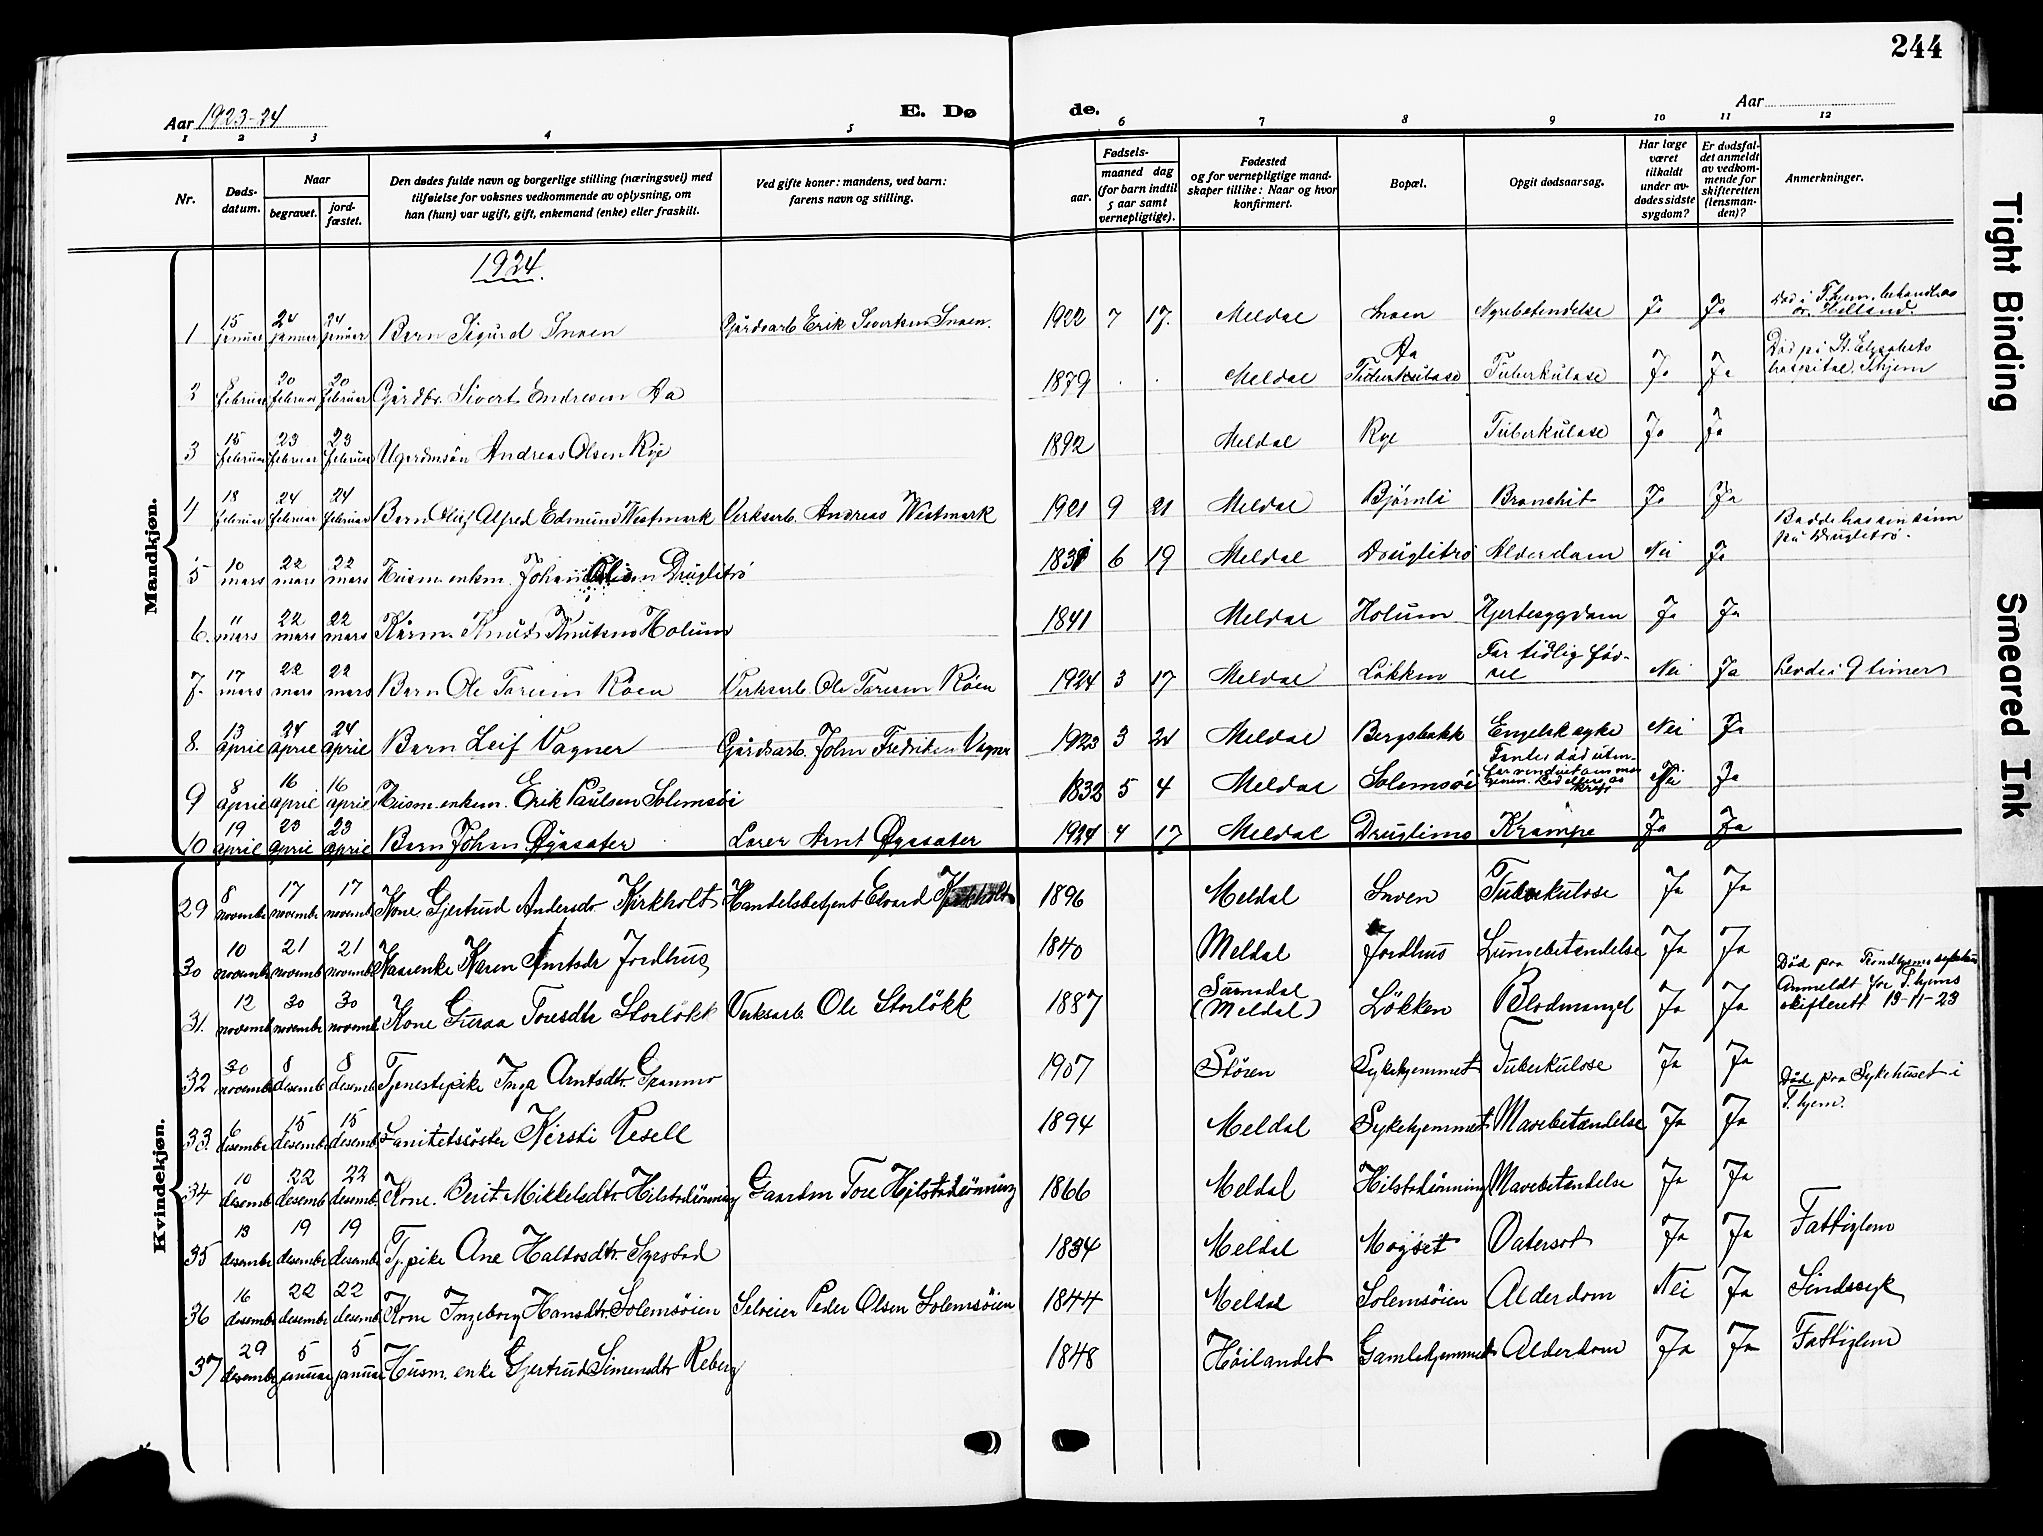 244
Aar 1923-24
E. Dø de.
Aar
1 2 3 4 5 6 7 8 9 10 11 12
Nr.
Døds-datum.
Naar
begravet.
jord-fæstet.
Den dødes fulde navn og borgerlige stilling (næringsvei) med tilføielse for voksnes vedkommende av oplysning, om han (hun) var ugift, gift, enkemand (enke) eller fraskilt.
Ved gifte koner: mandens, ved barn: farens navn og stilling.
Fødsels-
aar.
maaned dag (for barn indtil 5 aar samt vernepligtige).
Fødested og for vernepligtige mand-skaper tillike: Naar og hvor konfirmert.
Bopæl.
Opgit dødsaarsag.
Har læge været tilkaldt under av-dødes sidste sygdom?
Er dødsfal-det anmeldt av vedkom-mende for skifteretten (lensman-den)?
Anmerkninger.
Mandkjøn.
1924.
1 15 januar 24 januar 24 januar Barn Sigurd Snoen Gårdsarb. Erik Sivertsen Snoen. 1922 7 17. Meldal Snoen Nyrebetendelse Ja Ja Død i T.hjem, behandl. av dr. Helland
2 februar 20 februar 20 februar Gårdbr. Sivert Endresen Aa 1879 Meldal Aa Tuberkulose Tuberkulose Ja Ja Død på St. Elisabets hospital, T.hjem
3 15 februar 23 februar 23 februar Andreas Olsen Rye 1892 Meldal Rye Tuberkulose Ja Ja
4 18 februar 24 februar 24 februar Barn Oluf Alfred Edmund Westmark Verksarb. Andreas Westmark 1921 9 21 Meldal Bjørnli Bronchit Ja Ja
5 10 mars 22 mars 22 mars Husm. enkm. Johan Olsen Druglitrø 1831 6 19 Meldal Druglitrø Alderdom Nei Ja Bodde hos sin sønn på Drugletrø.
6. 11 mars 22 mars 22 mars Kårm. Knut Knutsen Holum 1841 Meldal Holum Hjertesygdom Ja Ja
7. 17 mars 22 mars 22 mars Barn Ole Toresen Røen Verksarb. Ole Toresen Røen 1924 3 17 Meldal Løkken For tidlig fød-sel Nei Ja Levde i 9 timer
8. 13 april 24 april 24 april Barn Leif Vagner Gårdsarb. John Fredriksen Vagner 1923 3 Meldal Bergsbakk Engelsk syke Nei Ja
9 8 april 16 april 16 april Husm. enkem. Erik Paulsen Solemsøi 1832 5 4 Meldal Solemsøi Nei Ja
10 19 april 23 april 23 april Barn Johan Øyasæter Lærer Arnt Øyasæter 1924 4 17 Meldal Druglimo Krampe Ja Ja
Kvindekjøn.
29 8 novembr 17 novembr 17 novembr Kone Gjertrud Andersdtr Kirkholt Handelsbetjent Edvard Kirkholt 1896 Meldal Snoen Tuberkulose Ja Ja
30 10 novembr 21 novembr 21 novembr Kaarenke Karen Arntsdtr Jordhus 1840 Meldal Jordhus Lungebetændelse Ja Ja
31. 12 novembr 30 novembr 30 novembr Kone Guroa Toresdtr Storløkk Verksarb Ole Storløkk 1887 Surnadal (Meldal) Løkken Blodmangel Ja Ja Død paa Trondhjems sykehus Anmeldt for T.hjems skifterett 13-11-23
32 30 novembr 8 desembr 8 desembr Tjenestepike Inga Arntsdtr. Granmo 1907 Støren Sykehjemmet Tuberkulose Ja Ja
33. 6 desembr 15 desembr 15 desembr Sanitetssøster Kirsti Resell 1894 Meldal Sykehjemmet Mavebetændelse Ja Ja Død paa Sykehuset i T.hjem.
34 10 desembr 22 desembr 22 desembr Kone. Berit Mikkelsdtr. Hilstadrønning Gaardm Tore Hilstadrønning 1866 Meldal Hilstadrønning Mavebetændelse Ja Ja
35 13 desembr 19 desembr 19 desembr Tj. pike Ane Haltorsdtr. Syrstad 1834 Meldal Mogset Vatersot Ja Ja Fattiglem
36 16 desembr 22 desembr 22 desembr Kone Ingeborg Hansdtr. Solemsøien Selveier Peder Olsen Solemsøien 1844 Meldal Solemsøien Alderdom Nei Ja Sindssyk
37 29 desembr 5 januar 5 januar Husm. enke Gjertrud Simensdtr Reberg 1848 Høilandet Gamlehjemmet Alderdom Ja Ja Fattiglem
Tight Binding
Smeared Ink